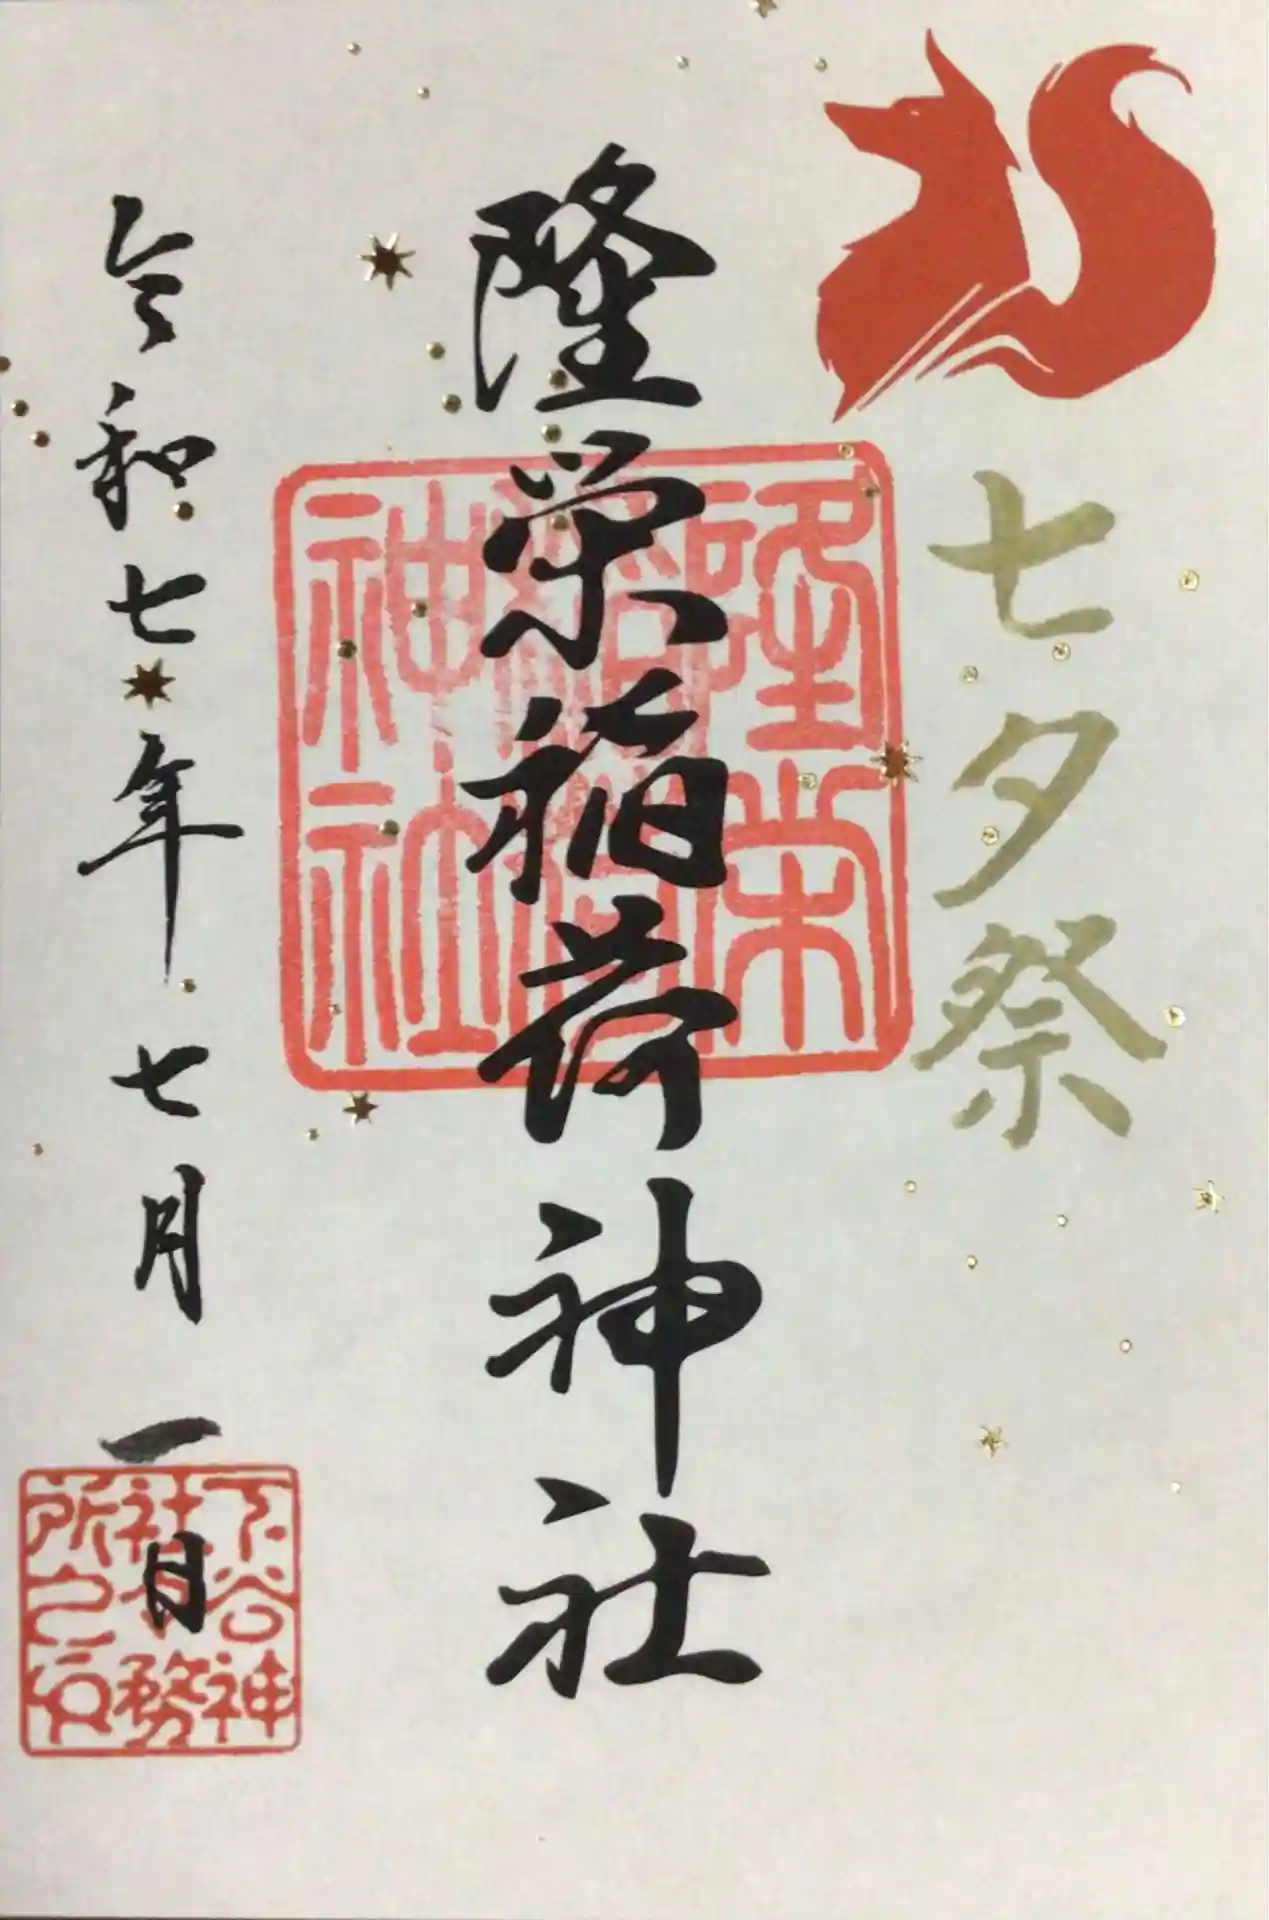 七夕祭
隆栄稲荷神社
隆栄
稲荷
神社
令和七年七月一日
下谷神
社社務
所之印